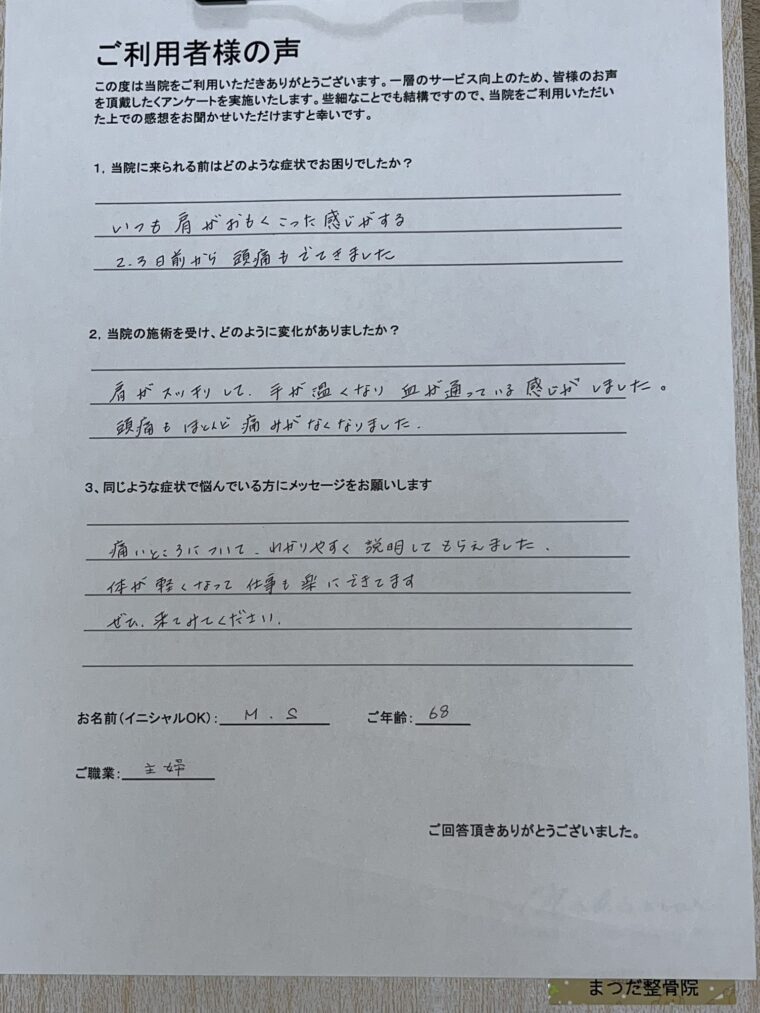 ご利用者様の声
この度は当院をご利用いただきありがとうございます。一層のサービス向上のため、皆様のお声
を頂戴したくアンケートを実施いたします。些細なことでも結構ですので、当院をご利用いただい
た上での感想をお聞かせいただけますと幸いです。
1，当院に来られる前はどのような症状でお困りでしたか？
いつも肩がおもくこった感じがする
2.3日前から頭痛もでてきました
2，当院の施術を受け、どのように変化がありましたか？
肩がスッキリして、手が温くなり血が通っている感じがしました。
頭痛もほとんど痛みがなくなりました.
3、同じような症状で悩んでいる方にメッセージをお願いします
痛いところについて、わかりやすく説明してもらえました.
体が軽くなって仕事も楽にできてます
ぜひ、来てみてください.
お名前（イニシャルOK）：M.S ご年齢：68
ご職業：主婦
ご回答頂きありがとうございました。
まつだ整骨院